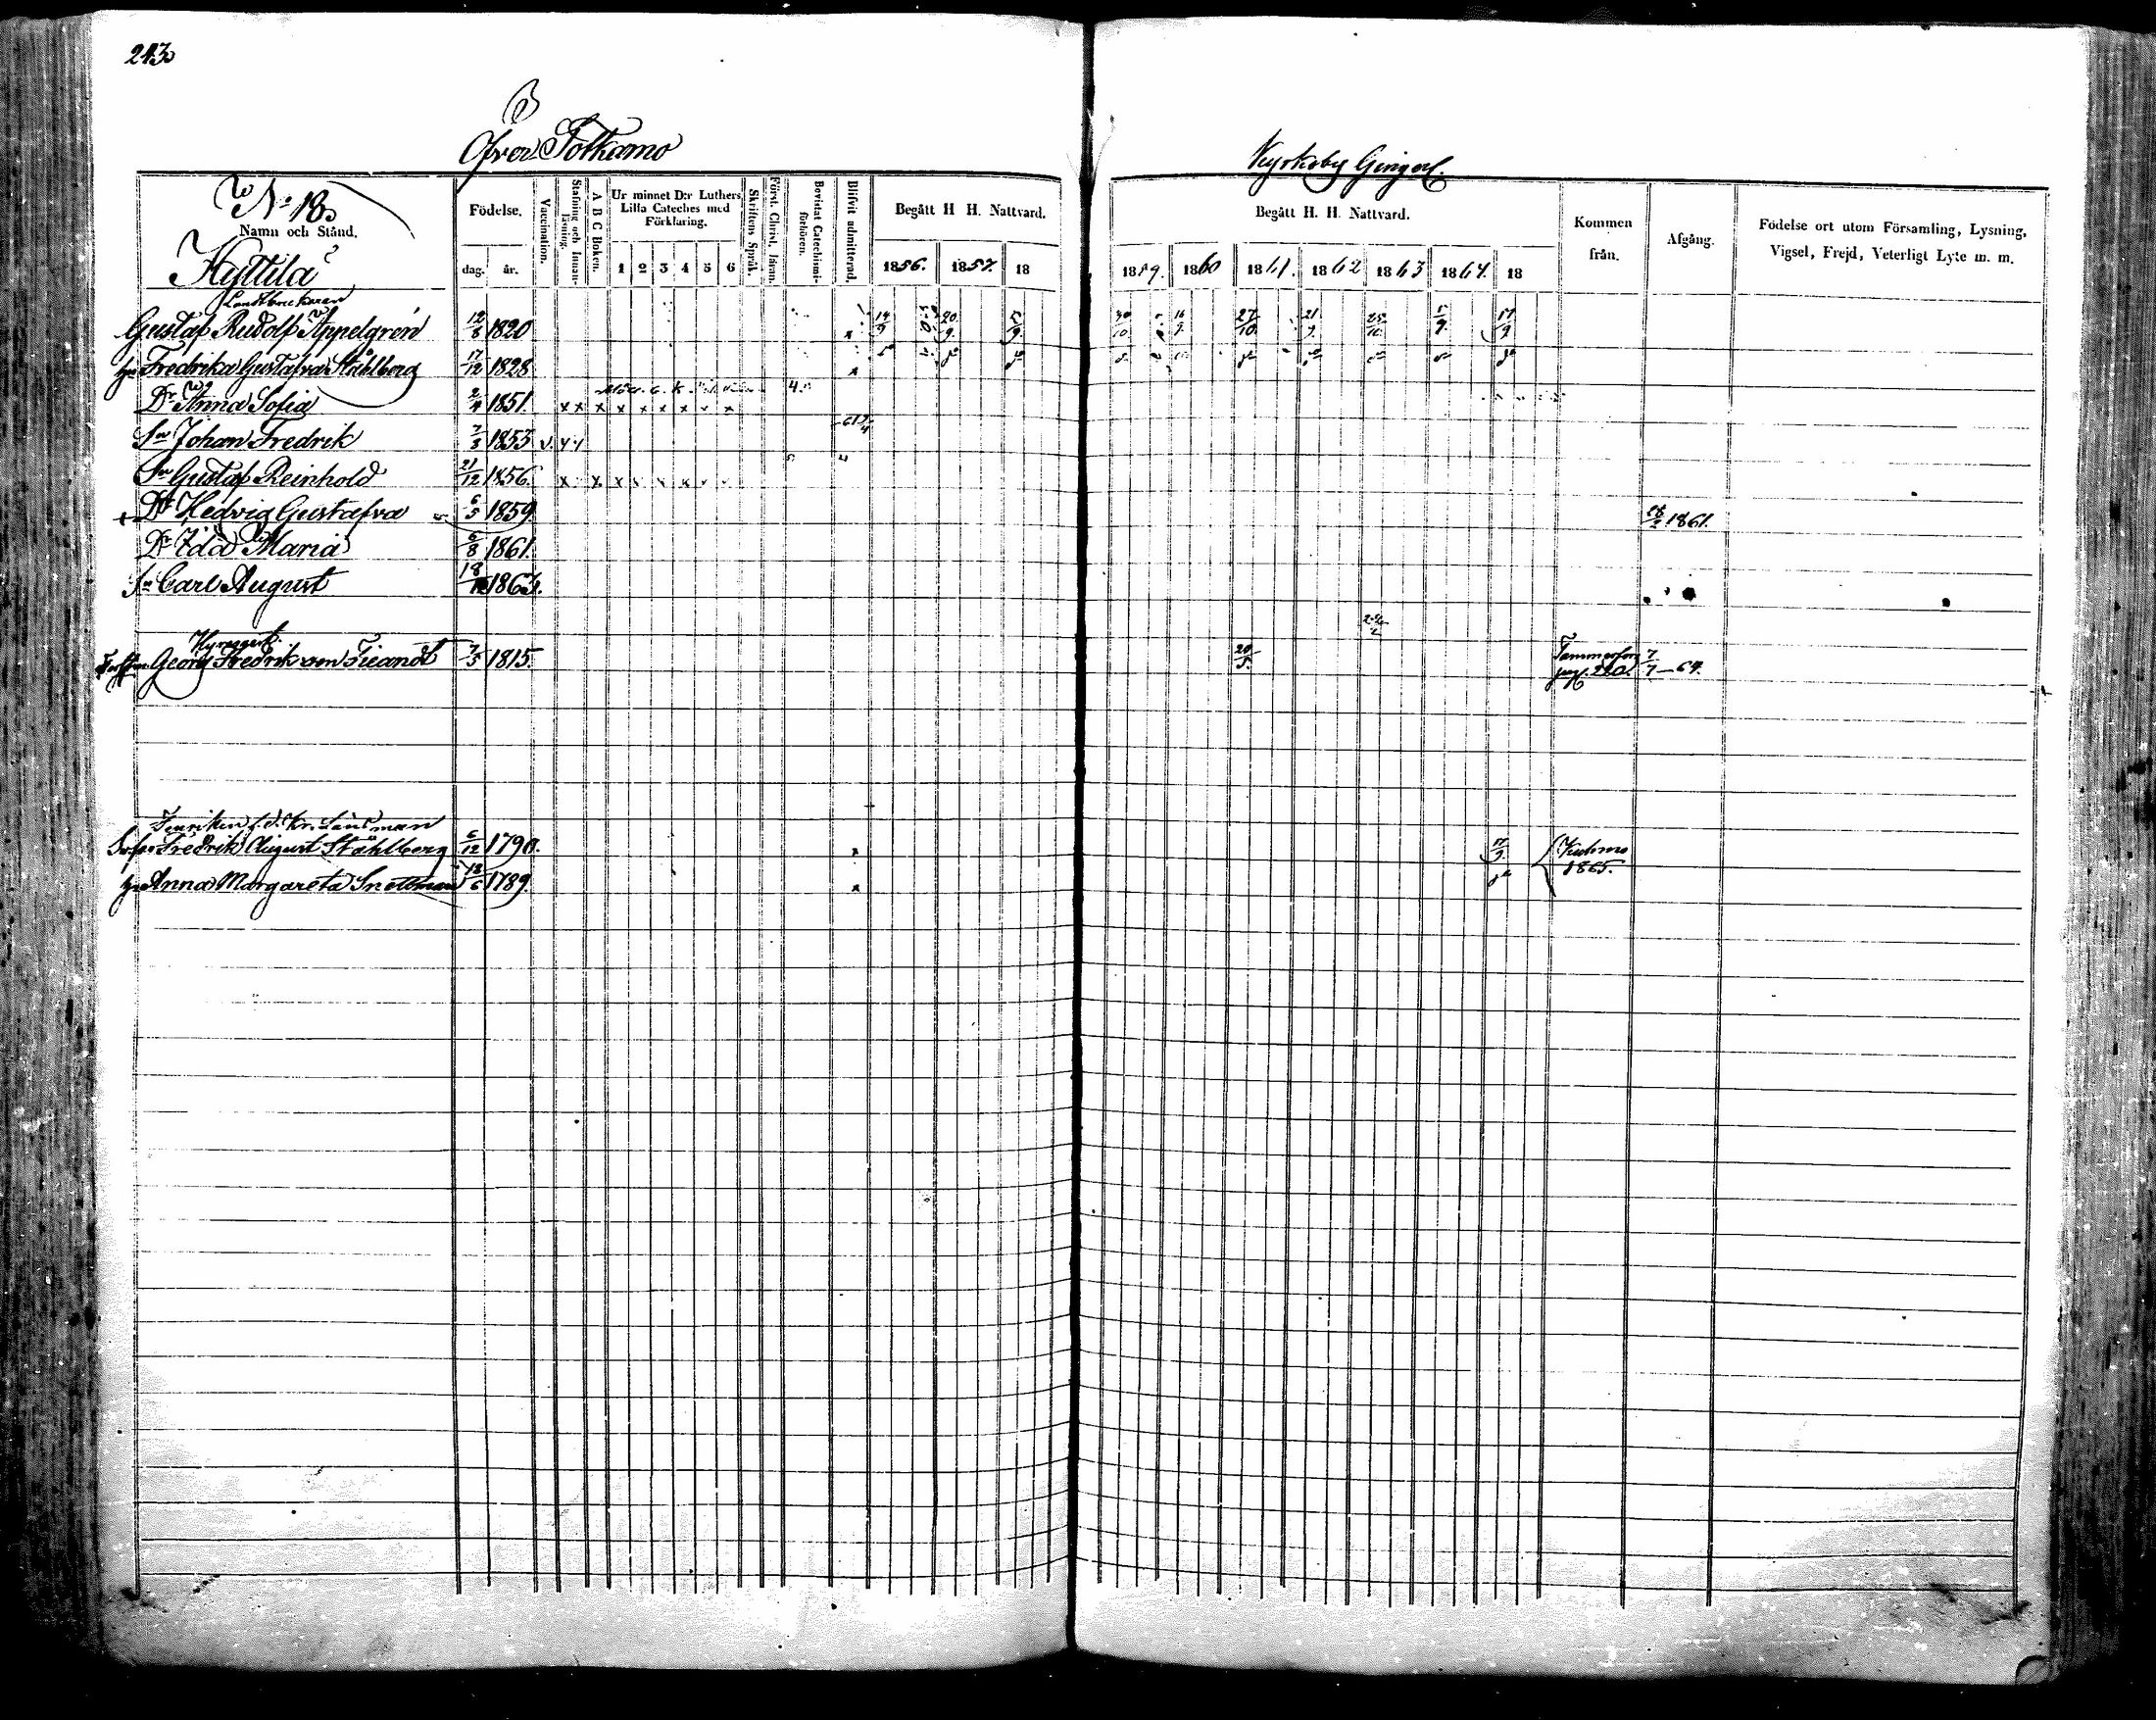 243
Öfver Sotkamo
Kyrkoby Gingerd.
No 18
Namn och Stånd.
Hyttilä
Födelse.
dag. år.
Vaccination.
Stafning och Innanläsning.
A B C Boken.
Ur minnet D:r Luthers Lilla Cateches med Förklaring.
1 2 3 4 5 6
Skriftens Språk.
Först. Christ. läran.
Bevistat Catechismiförhören.
Blifvit admitterad.
Begått H H. Nattvard.
1856. 1857. 18
Begått H. H. Nattvard.
1859. 1860 1861. 1862 1863 1864. 18
Kommen från.
Afgång.
Födelse ort utom Församling, Lysning, Vigsel, Frejd, Veterligt Lyte m. m.
Landtbrukaren
Gustaf Rudolf Appelgrén 12/8 1820 x 14/9 20/9 30/10 16/9 27/10 21/9 25/10 17/9
hu Fredrika Gustafva Ståhlberg 17/12 1828 x
Dr Anna Sofia 2/4 1851. x x x x x x x x
Sn Johan Fredrik 7/3 1853 v.
Sn Gustaf Reinhold 21/12 1856. x x x x x x
+ Dr Hedvig Gustafva 6/5 1859 18/2 1861.
Dr Ida Maria 6/8 1861.
Sn Carl August 18/12 1863.
Hyresgäst.
Georg Fredrik von Fieandt 7/5 1815 20/5 Tammerfors pag. 280. 7/7 – 64.
Fenriken f.d. Kr. Länsman
Fredrik August Ståhlberg 6/12 1790. x 17/9 Kuhmo 1865.
hu Anna Margareta Snellman 18/6 1789. x